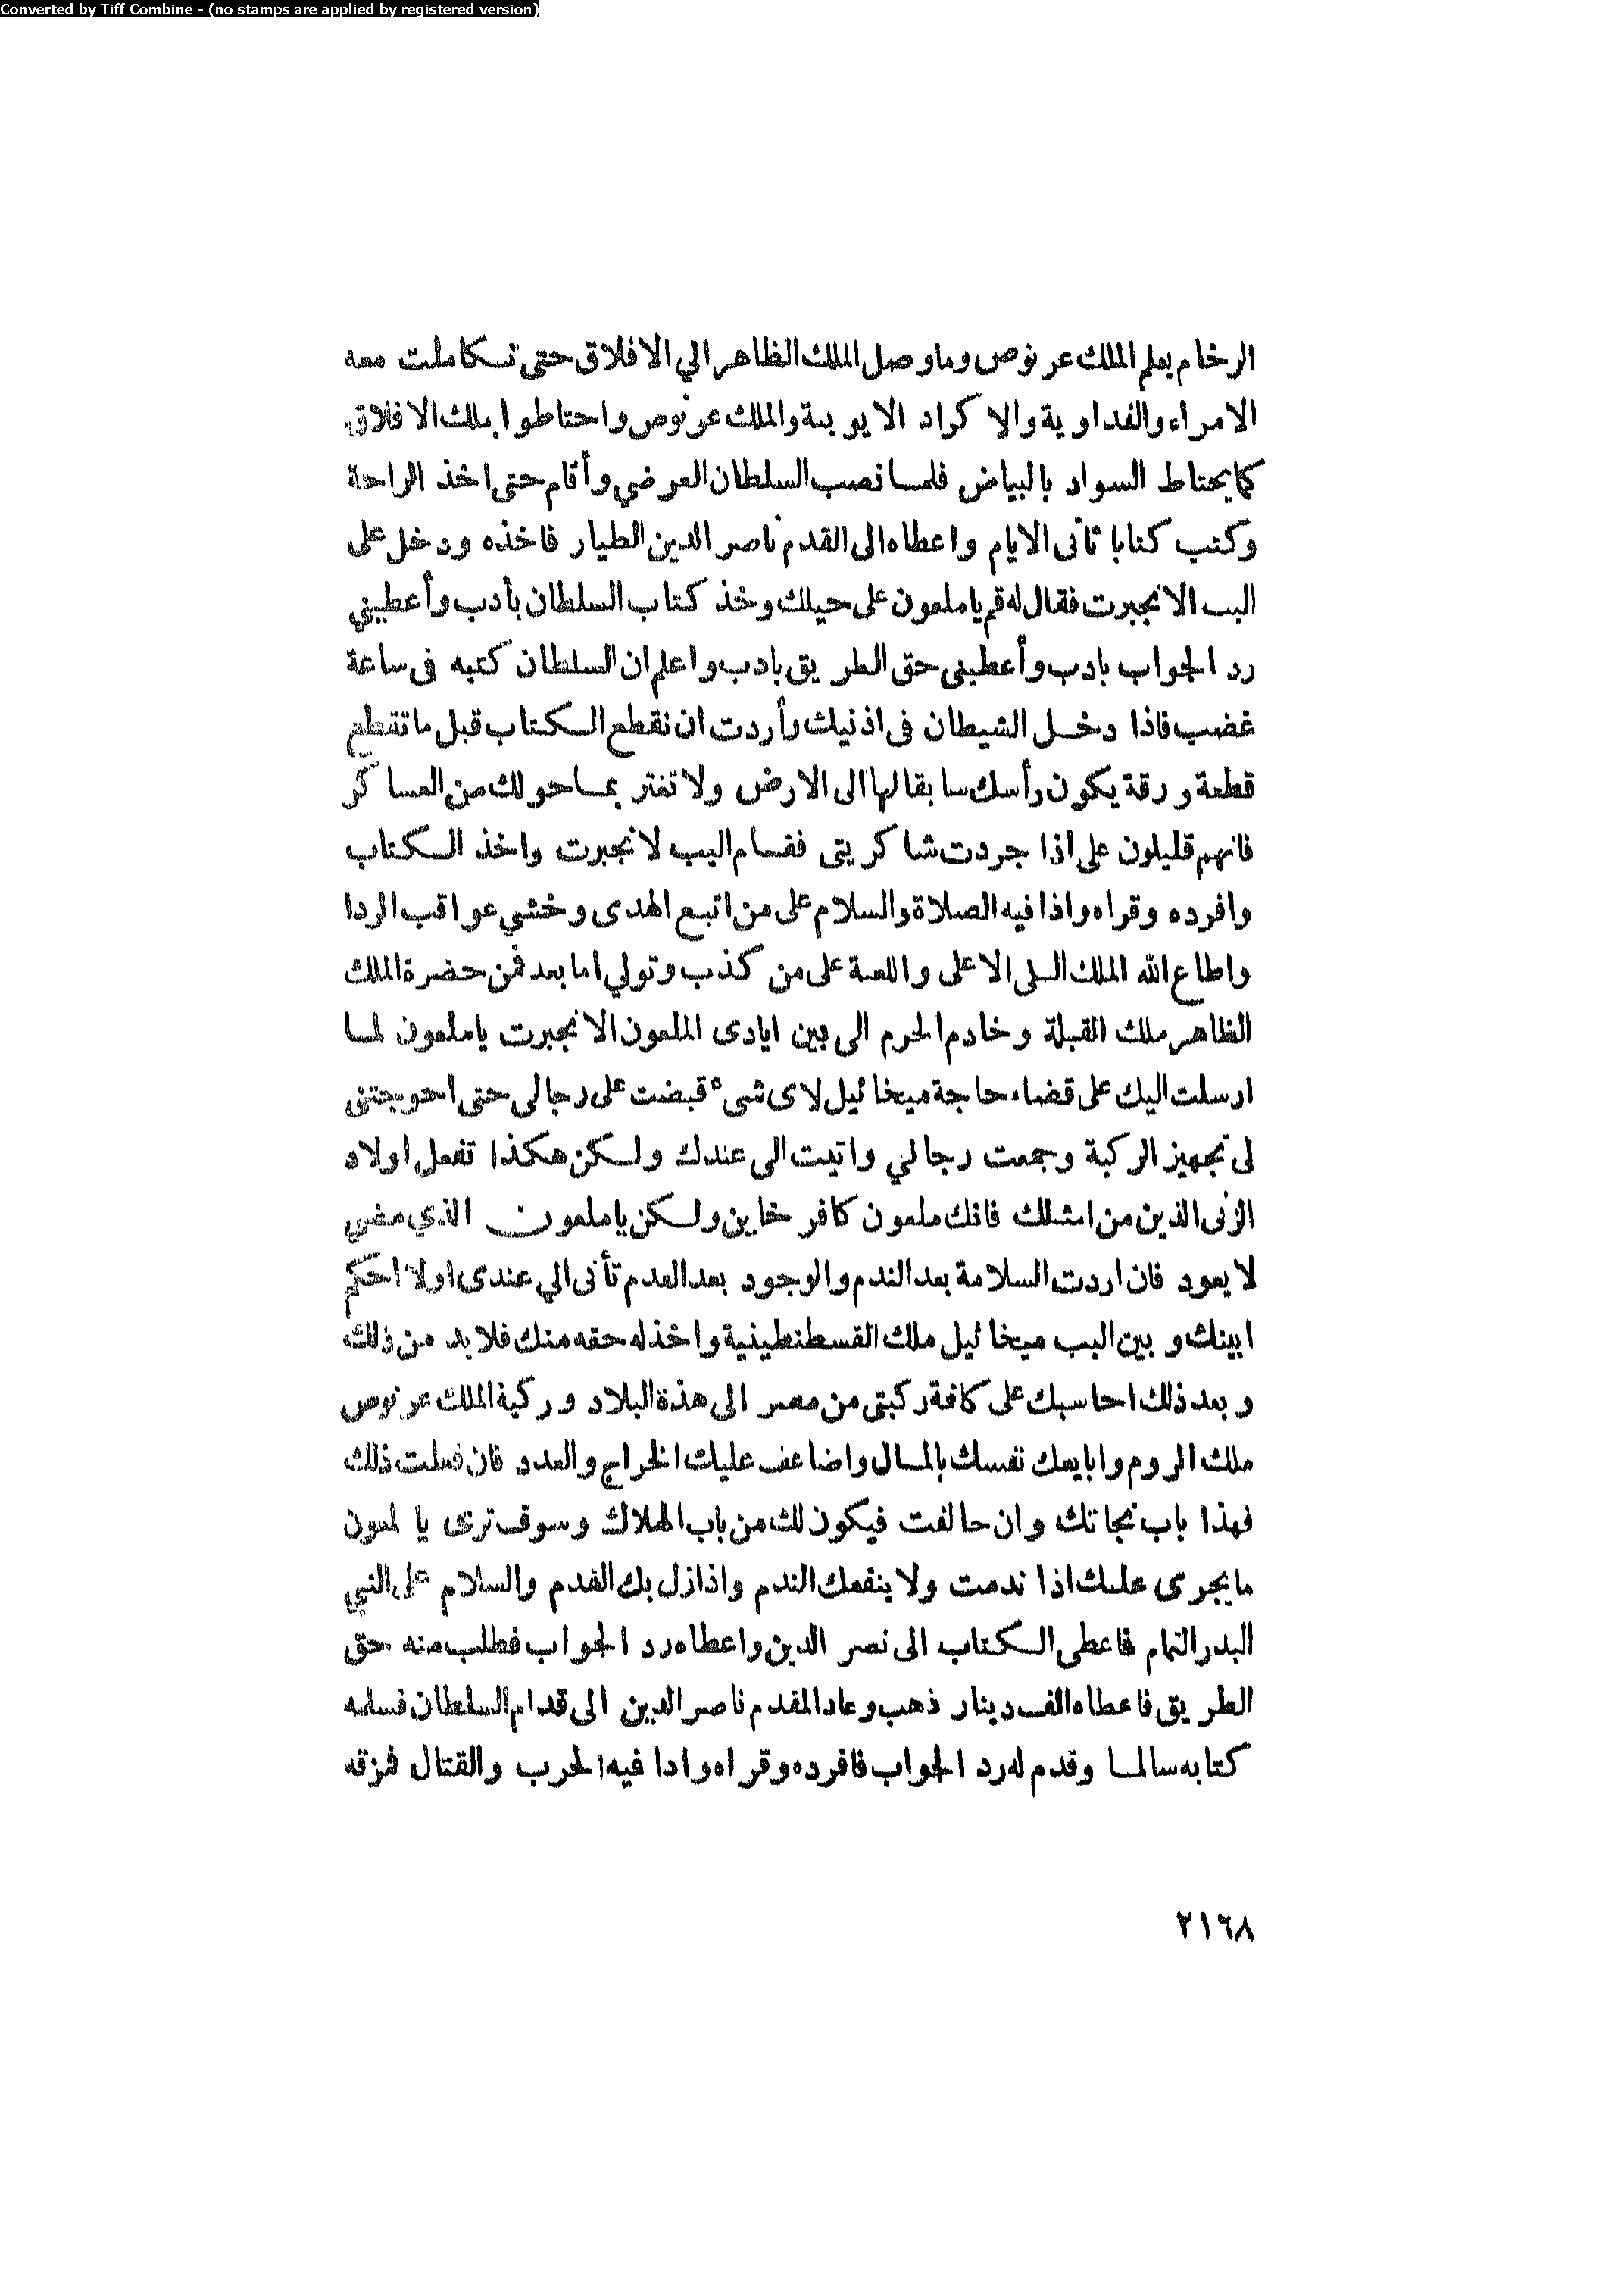 Converted by Tiff Combine - (no stamps are applied by registered version)
الرخام بعلم الملك عرنوص وما وصل الملك الظاهر الي الافلاق حتى تكاملت معه
الامراء والفداوية والاكراد الايوبية والملك عرنوص واحتاطوا بملك الافلاق
كما يحتاط السواد بالبياض فلما نصب السلطان العرضي وأقام حتى اخذ الراحة
وكتب كتابا ثانى الايام واعطاه الى القدم ناصر الدين الطيار فاخذه ودخل على
البب الانجبرت فقال له قم يا ملعون على حيلك وخذ كتاب السلطان بأدب وأعطيني
رد الجواب بادب وأعطينى حق الطريق بادب واعلم ان السلطان كتبه فى ساعة
غضب فاذا دخل الشيطان فى اذنيك وأردت ان نقطع الكتاب قبل ما تقطع
قطعة ورقة يكون رأسك سابقا لها الى الارض ولا تغتر بما حولك من العساكر
فانهم قليلون على اذا جردت شاكريتى فقام البب لانجبرت واخذ الكتاب
وافرده وقراه واذا فيه الصلاة والسلام على من اتبع الهدى وخشي عواقب الردا
واطاع الله الملك العلى الاعلى واللعنة على من كذب وتولي اما بعد فمن حضرة الملك
الظاهر ملك القبلة وخادم الحرم الى بين ايادى الملعون الانجبرت يا ملعون لما
ارسلت اليك على قضاء حاجة ميخائيل لاى شىء قبضت على رجالى حتى احوجتنى
لى تجهيز الركبة وجمعت رجالي واتيت الى عندك ولكن هكذا تفعل اولاد
الزنى الذين من امثلك فانك ملعون كافر خاين ولكن يا ملعون الذي مضي
لا يعود فان اردت السلامة بعد الندم والوجود بعد العدم تأتى الي عندى اولا احكم
ابينك وبين البب ميخائيل ملك القسطنطينية واخذ له حقه منك فلا بد من ذلك
وبعد ذلك احاسبك على كافة ركبتى من مصر الى هذة البلاد وركبة الملك عرنوص
ملك الروم وابايعك نفسك بالمال واضاعف عليك الخراج والعدد فان فعلت ذلك
فهذا باب نجاتك وان حالفت فيكون لك من باب الهلاك وسوف ترى يا لمعون
ما يجرى عليك اذا ندمت ولا ينفعك الندم واذا زل بك القدم والسلام على النبي
البدر التمام فاعطى الكتاب الى نصر الدين واعطاه رد الجواب فطلب منه حق
الطريق فاعطاه الف دينار ذهب وعاد المقدم ناصر الدين الى قدام السلطان فسلمه
كتابه سالما وقدم له رد الجواب فافرده وقراه وادا فيه الحرب والقتال فمزقه
٢١٦٨